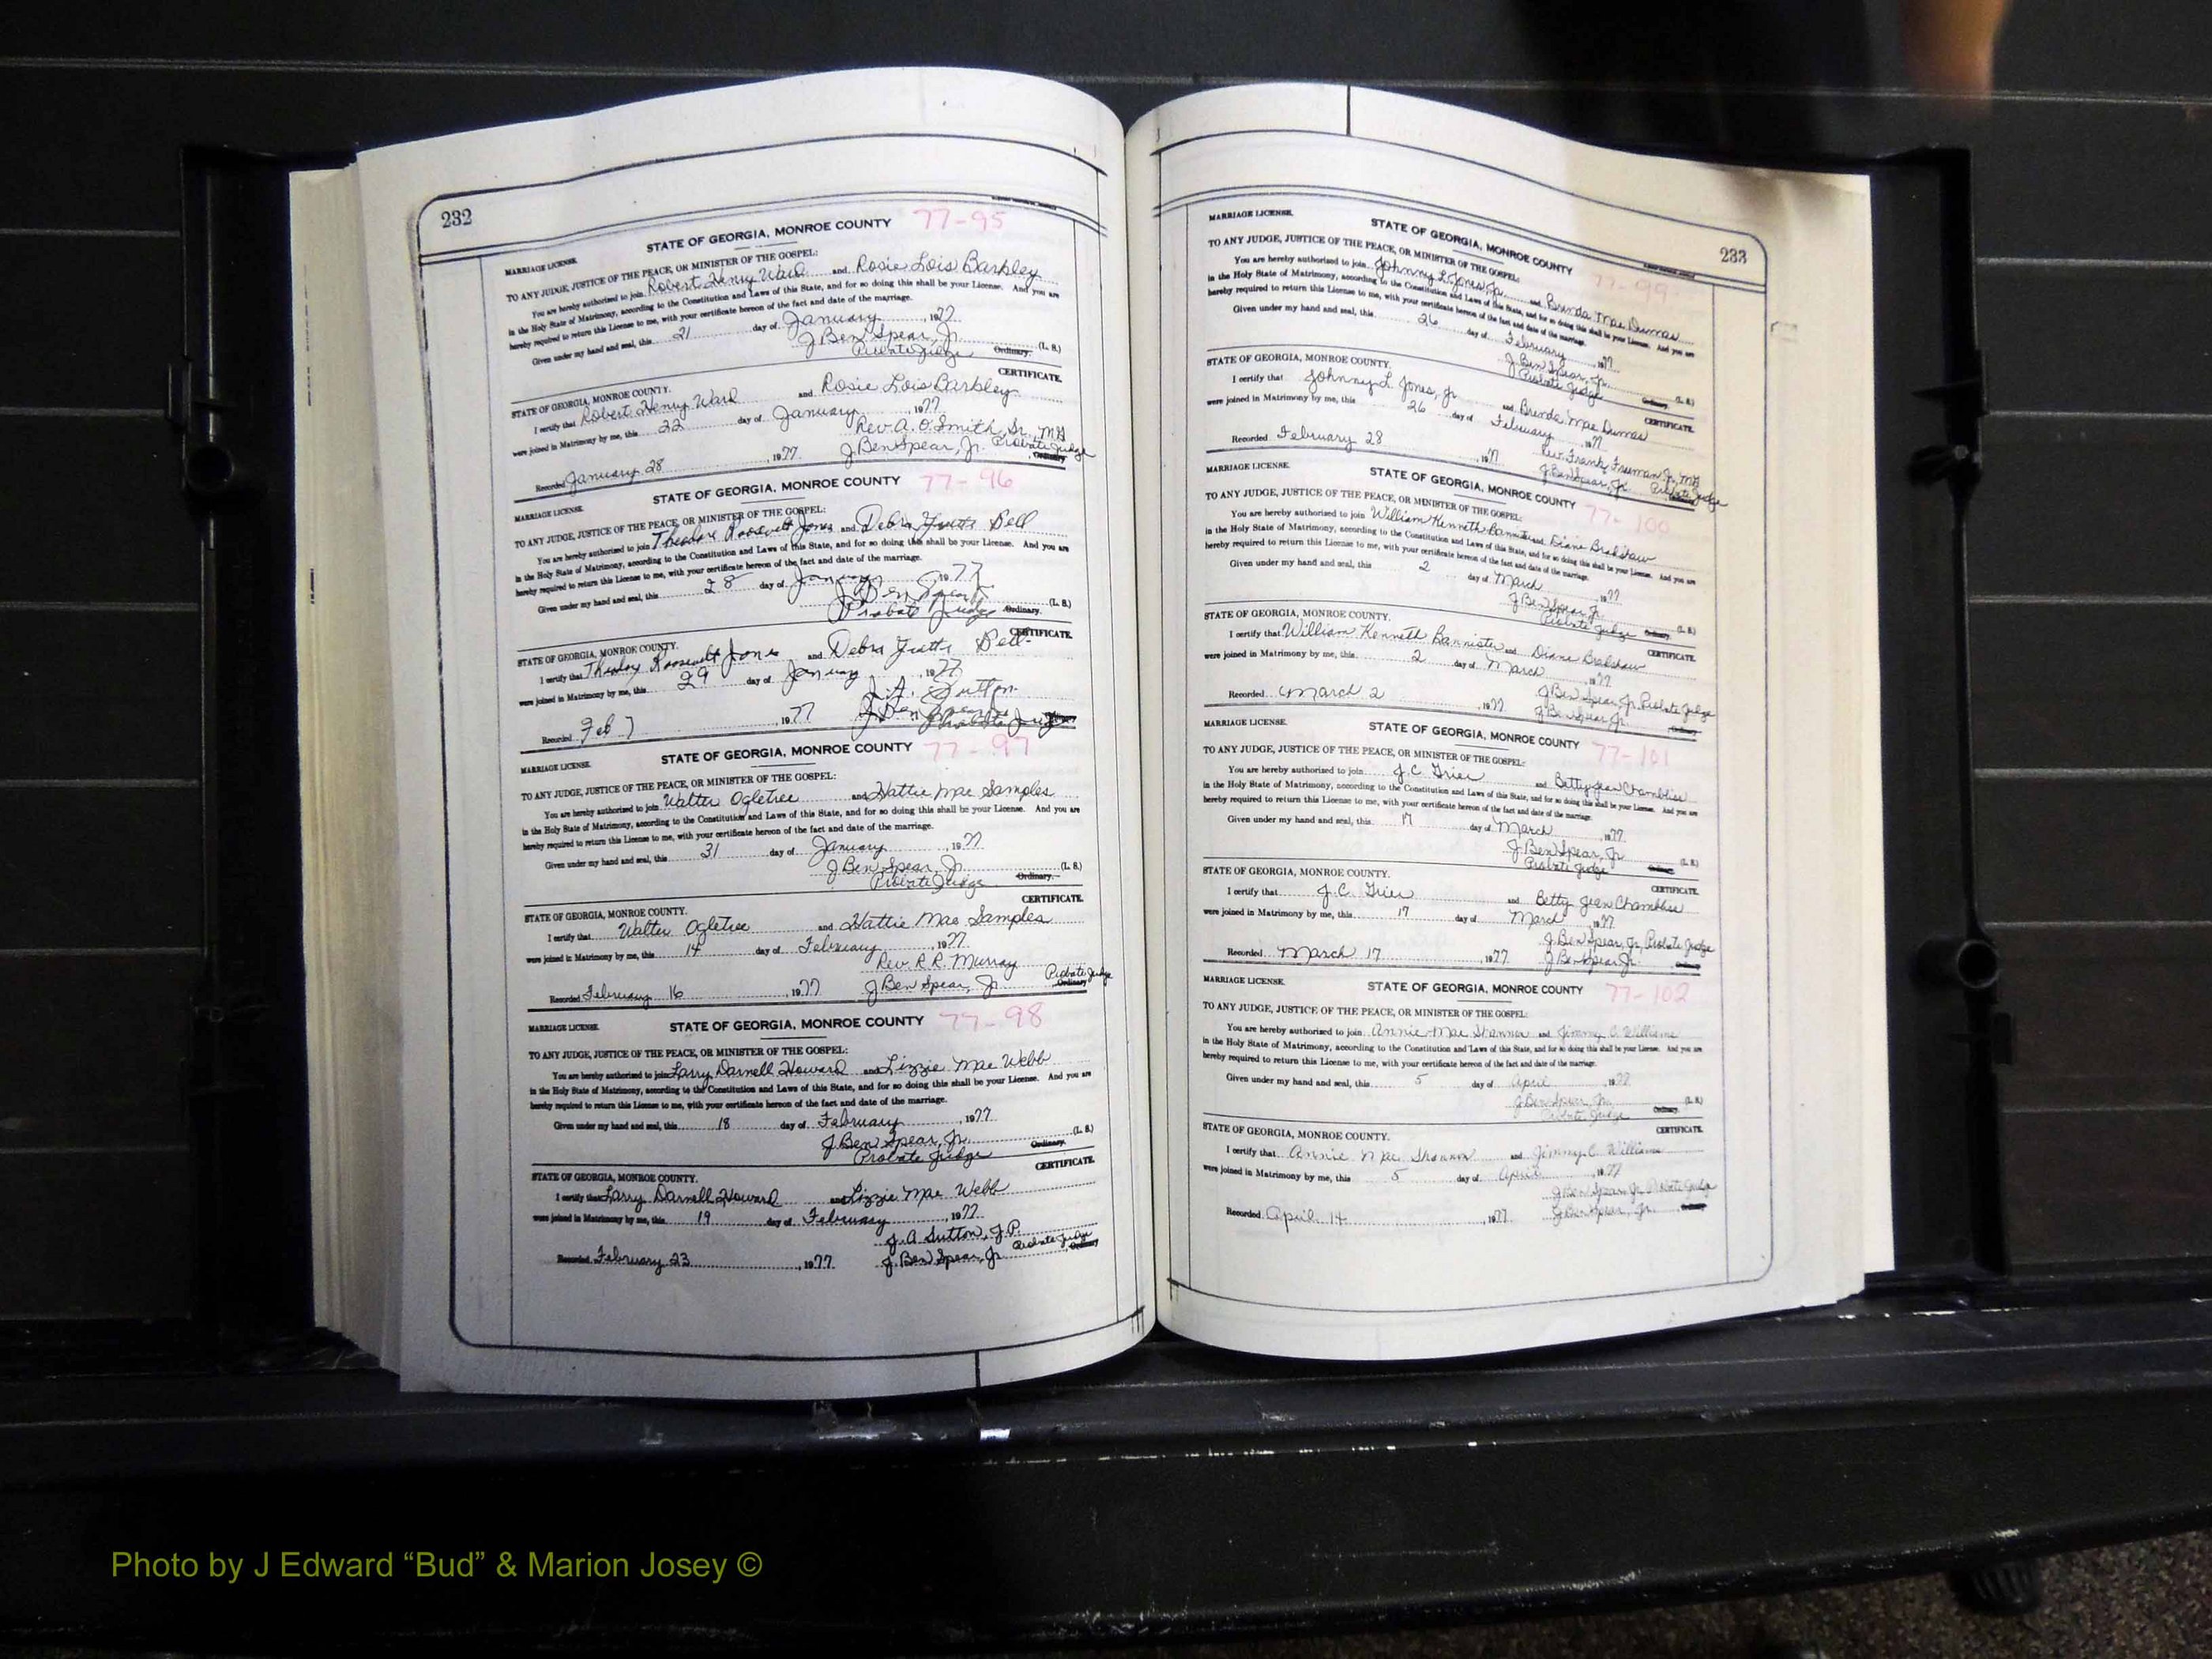 232
STATE OF GEORGIA, MONROE COUNTY 77-95
MARRIAGE LICENSE.
TO ANY JUDGE, JUSTICE OF THE PEACE, OR MINISTER OF THE GOSPEL:
You are hereby authorized to join Robert Henry Ward and Rosie Lois Barkley
in the Holy State of Matrimony, according to the Constitution and Laws of this State, and for so doing this shall be your License. And you are
hereby required to return this License to me, with your certificate hereon of the fact and date of the marriage.
Given under my hand and seal, this 21 day of January, 1977
J Ben Spear, Jr. (L. S.)
Probate Judge Ordinary.
CERTIFICATE.
STATE OF GEORGIA, MONROE COUNTY.
I certify that Robert Henry Ward and Rosie Lois Barkley
were joined in Matrimony by me, this 22 day of January, 1977
Rev. A. O. Smith Sr., MG
Recorded January 28, 1977 J. Ben Spear, Jr. Probate Judge Ordinary
STATE OF GEORGIA, MONROE COUNTY 77-96
MARRIAGE LICENSE.
TO ANY JUDGE, JUSTICE OF THE PEACE, OR MINISTER OF THE GOSPEL:
You are hereby authorized to join Theodore Roosevelt Jones and Debra Bell
in the Holy State of Matrimony, according to the Constitution and Laws of this State, and for so doing this shall be your License. And you are
hereby required to return this License to me, with your certificate hereon of the fact and date of the marriage.
Given under my hand and seal, this 28 day of January 1977
J Ben Spear Jr (L. S.)
Probate Judge Ordinary.
CERTIFICATE.
STATE OF GEORGIA, MONROE COUNTY.
I certify that Roosevelt Jones and Debra Bell
were joined in Matrimony by me, this 29 day of January, 1977
J. A. Sutton
Recorded Feb 7, 1977 J Ben Spear Jr Probate Judge
STATE OF GEORGIA, MONROE COUNTY 77-97
MARRIAGE LICENSE.
TO ANY JUDGE, JUSTICE OF THE PEACE, OR MINISTER OF THE GOSPEL:
You are hereby authorized to join Walter Ogletree and Hattie Mae Samples
in the Holy State of Matrimony, according to the Constitution and Laws of this State, and for so doing this shall be your License. And you are
hereby required to return this License to me, with your certificate hereon of the fact and date of the marriage.
Given under my hand and seal, this 31 day of January, 1977
J Ben Spear, Jr. (L. S.)
Probate Judge Ordinary.
CERTIFICATE.
STATE OF GEORGIA, MONROE COUNTY.
I certify that Walter Ogletree and Hattie Mae Samples
were joined in Matrimony by me, this 14 day of February, 1977
Rev. R.R. Murray
Recorded February 16, 1977 J Ben Spear, Jr. Probate Judge Ordinary
MARRIAGE LICENSE. STATE OF GEORGIA, MONROE COUNTY 77-98
TO ANY JUDGE, JUSTICE OF THE PEACE, OR MINISTER OF THE GOSPEL:
You are hereby authorized to join Larry Darnell Howard and Lizzie Mae Webb
in the Holy State of Matrimony, according to the Constitution and Laws of this State, and for so doing this shall be your License. And you are
hereby required to return this License to me, with your certificate hereon of the fact and date of the marriage.
Given under my hand and seal, this 18 day of February, 1977
J. Ben Spear, Jr. (L. S.)
Probate Judge Ordinary.
CERTIFICATE.
STATE OF GEORGIA, MONROE COUNTY.
I certify that Larry Darnell Howard and Lizzie Mae Webb
were joined in Matrimony by me, this 19 day of February, 1977
J. A. Sutton, J.P.
Recorded February 23, 1977 J. Ben Spear, Jr. Probate Judge Ordinary
233
MARRIAGE LICENSE. STATE OF GEORGIA, MONROE COUNTY 77-99
TO ANY JUDGE, JUSTICE OF THE PEACE, OR MINISTER OF THE GOSPEL:
You are hereby authorized to join Johnny L. Jones Jr. and Brenda Mae Dumas
in the Holy State of Matrimony, according to the Constitution and Laws of this State, and for so doing this shall be your License. And you are
hereby required to return this License to me, with your certificate hereon of the fact and date of the marriage.
Given under my hand and seal, this 26 day of February, 1977
J. Ben Spear, Jr. (L. S.)
Probate Judge Ordinary.
CERTIFICATE.
STATE OF GEORGIA, MONROE COUNTY.
I certify that Johnny L. Jones, Jr and Brenda Mae Dumas
were joined in Matrimony by me, this 26 day of February 1977
Rev. Frank Freeman Jr, MG
Recorded February 28, 1977 J Ben Spear, Jr. Probate Judge
MARRIAGE LICENSE. STATE OF GEORGIA, MONROE COUNTY 77-100
TO ANY JUDGE, JUSTICE OF THE PEACE, OR MINISTER OF THE GOSPEL:
You are hereby authorized to join William Kenneth Bannister and Diane Bradshaw
in the Holy State of Matrimony, according to the Constitution and Laws of this State, and for so doing this shall be your License. And you are
hereby required to return this License to me, with your certificate hereon of the fact and date of the marriage.
Given under my hand and seal, this 2 day of March, 1977
J Ben Spear Jr. (L. S.)
Probate Judge Ordinary.
CERTIFICATE.
STATE OF GEORGIA, MONROE COUNTY.
I certify that William Kenneth Bannister and Diane Bradshaw
were joined in Matrimony by me, this 2 day of March, 1977
J Ben Spear, Jr, Probate Judge
Recorded March 2, 1977 J Ben Spear Jr. Ordinary
MARRIAGE LICENSE. STATE OF GEORGIA, MONROE COUNTY 77-101
TO ANY JUDGE, JUSTICE OF THE PEACE, OR MINISTER OF THE GOSPEL:
You are hereby authorized to join J.C. Grier and Betty Jean Chambliss
in the Holy State of Matrimony, according to the Constitution and Laws of this State, and for so doing this shall be your License. And you are
hereby required to return this License to me, with your certificate hereon of the fact and date of the marriage.
Given under my hand and seal, this 17 day of March, 1977
J Ben Spear, Jr (L. S.)
Probate Judge Ordinary.
CERTIFICATE.
STATE OF GEORGIA, MONROE COUNTY.
I certify that J.C. Grier and Betty Jean Chambliss
were joined in Matrimony by me, this 17 day of March, 1977
J. Ben Spear, Jr, Probate Judge
Recorded March 17, 1977 J Ben Spear Jr. Ordinary
MARRIAGE LICENSE. STATE OF GEORGIA, MONROE COUNTY 77-102
TO ANY JUDGE, JUSTICE OF THE PEACE, OR MINISTER OF THE GOSPEL:
You are hereby authorized to join Annie Mae Shannon and Jimmy C. Williams
in the Holy State of Matrimony, according to the Constitution and Laws of this State, and for so doing this shall be your License. And you are
hereby required to return this License to me, with your certificate hereon of the fact and date of the marriage.
Given under my hand and seal, this 5 day of April, 1977
J Ben Spear Jr. (L. S.)
Probate Judge Ordinary.
CERTIFICATE.
STATE OF GEORGIA, MONROE COUNTY.
I certify that Annie Mae Shannon and Jimmy C. Williams
were joined in Matrimony by me, this 5 day of April, 1977
J Ben Spear Jr Probate Judge
Recorded April 14, 1977 J Ben Spear, Jr. Ordinary
Photo by J Edward “Bud” & Marion Josey ©